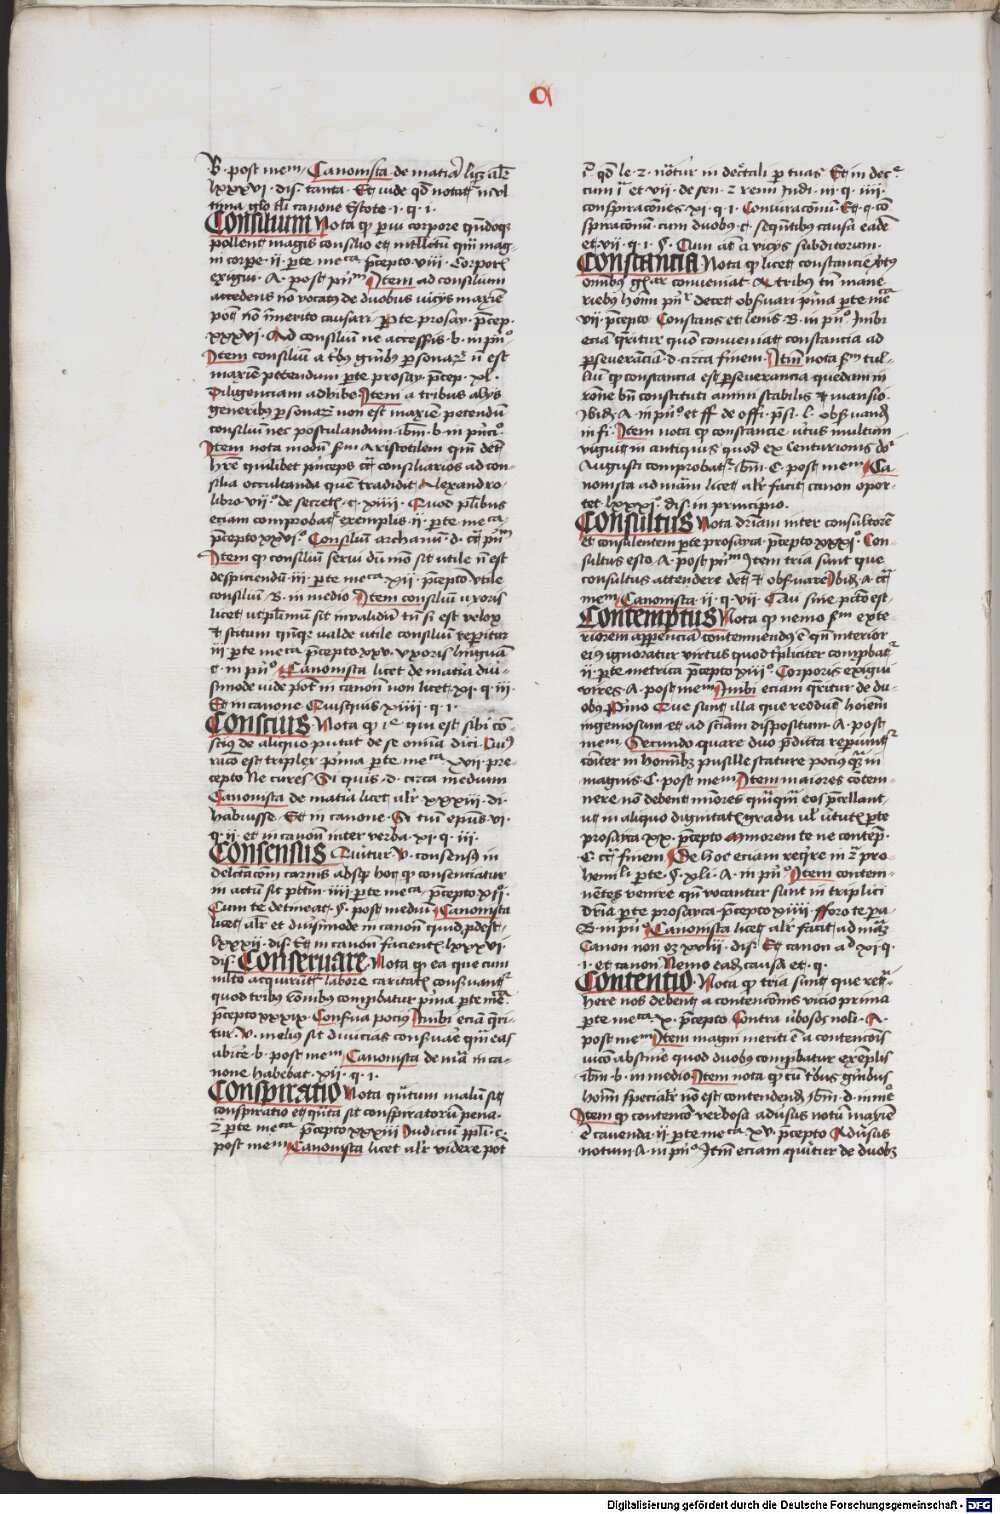 a
B· post mem̄ Canonista de materia licet alr̄
lxxxvi· dis· tanta· Et vide qd̄ notat᷑ in vl
tima glo· tli canone Estote ·i· q· i·
Consilium Nota qͥ parui corpore qn̄doqꝫ
pollent magis consilio et intllc̄tu qm̄ mag
ni corpe· ii· ꝑte meᶜᵃ p̄cepto viii· Corporꝭ
exigui· A· post pͥnᵐ Item ad consilium
accedens no vocatꝯ de duobus vicijs maxie
pot no īmerito causari· ꝑte prosay· p̄cep·
xxxvi· Ad consiliū ne accessis· b· in pͥnᵒ·
Item consiliū a tbꝫ gnībꝫ ꝑsonarꝫ n̄ est
maxie petendum ꝑte prosay· p̄cep· xl·
Diligenciam adhibe· Item a tribus alijs
generibꝫ ꝑsonarꝫ non est maxie petendū
consiliū nec postulandum· ibm̄· b· in pͥncᵒ·
Item nota modū sm̄ Aristotilem qm̄ det
hr̄e quilibet pͥnceps cͣ consiliarios ad con
silia occultanda quē tradidit Alexandro·
libro vii·ᵒ de secretꝭ· c· xiiii· Quod pl̄ibus
eciam comprobat᷑ exemplis· ii· ꝑte meᶜᵃ·
p̄cepto xxviᵒ· Consiliū archanū· d· cͣ pͥnᵐ
Item qͥ consiliū serui dū mō sit vtile n̄ est
despiciendū· iii· ꝑte meᶜᵃ xii· p̄cepto vtile
consiliū· B· in medio· Item consiliū vxoris
licet vt plimū sit inualidū tn̄ si est velox
et stitum qn̄qꝫ valde vtile consiliū reperitur
iii· ꝑte meᶜᵃ p̄cepto xxv· vxoris linguam
c· in pͥnᵒ· Canonista licet de materia diui
simode vide pot in canon non licet· xi· q· iii·
Et in canone Quisquis xiiii· q· i·
Conscius· Nota qͥ is qui est sibi con
scius de aliquo putat de se omnia dici· Cuiꝰ
racio est triplex prima ꝑte meᶜᵃ xvii· pre
cepto Ne cures Si quis· d· circa medium
Canonista de materia licet alr̄ xxxiii· di·
habuisse· Et in canone· Si tuū ep̄us· vi·
q· ii· et in canon inter verba· xi· q· iii·
Consensus Queritur· V· consensꝫ in
delectacōni carnis absqꝫ hoc qͥ consenciatur
in actum sit pctm̄· iiii· ꝑte meᶜᵃ· p̄cepto xiiᵒ·
Cum te detineat· S· post mediū· Canonista
licet alr̄ et diuisimode in canon quid pdest·
lxxxii· dis· Et in canon facientꝭ lxxxvi·
dis· Conseruare Nota qͥ ea que cum
mlto acquirūt᷑ labore caritatꝭ conseruant᷑
quod tribꝫ rōnibus compbatur pͥma ꝑte meᶜᵃ·
p̄cepto xxxix· Conserua pocius Inibi eciā queri
tur· V· melius sit diuicias conseruare qm̄ eas
abicere· b· post mem̄ Canonista de mͣa in ca
none habebat· xii· q· i·
Conspiratio Nota qn̄tum malū sit
conspiratio et qn̄ta sit conspiratorū pena·
2ᵃ ꝑte meᶜᵃ· p̄cepto xxxiii Iudiciū ppl̄i· c·
post mem̄ Canonista licet alr̄ videre pot
i· qd̄ le· 2· nōtur in dec̄tali ꝑ tuas· Et in dec·
cum iᵃ· et vii· de sen· 2 re iudi· iii· q· iiii·
conspiracōnes· xi· q· i· Coniuracōnū· Et q· con
spiracōnū· cum duobꝫ· c· sequētibꝫ causa eadē
et vii· q· i· §· Cum at̄ a vicijs subditorum·
Constancia Nota qͥ licet constancie vtꝰ
omnibus ghͣar conueniat· A tribus tn̄ mane
riebꝫ hoīm pͥnͬ decet obseruari· pͥma ꝑte meᶜᵃ
vii· p̄cepto· Constans et lenis· B· in pͥnᵒ· Inibi
eciā queritur quō conueniat constancia ad
ꝑseuerāciā· d· circa finem· Itm̄ nota sm̄ tul
liū qͥ constancia est ꝑseuerancia quedam in
rōne bn̄ constituti animi stabilis et mansio·
Ibidꝫ A· in pͥnᵒ· et ff· de offi· psī· l· obseruandꝫ
in fi· Item nota qͥ constancie virtus multum
viguit in antiquis quod ex Centurionis doᶜ
Augusti comprobat᷑· ibm̄· C· post mem̄· Ca
nonista ad materiam licet alr̄ facit canon opor
tet lxxxiᵒ· dis· in principio·
Consultus Nota driam inter consultorē
et consulentem ꝑte prosayca p̄cepto xxxiᵒ· Con
sultus esto· A· post pͥnᵐ Item tria sunt que
consultus attendere det et obseruare Ibidꝫ· A· cͣ
mem̄· Canonista· ii· q· vii· Cau· sine pcto est·
Contemptus Nota qͥ nemo sm̄ exte
riorem apparenciam contemnendus ē qm̄ interior
eius ignoratur virtus quod tripliciter compbat᷑
ii· ꝑte metrica p̄cepto xiiiᵒ· Corporis exigui
vires· A· post mem̄ Inibi eciam queritur de du
obꝫ Primo Que sunt illa que reddunt hoīem
ingeniosum et ad sciam dispositum· A· post
mem̄· Secundo quare duo predicta reperiunt᷑
coīter in homībꝫ pusille stature pocius qm̄ in
magnis· C· post mem̄ Item maiores cōtem
nere nō debent minores qm̄qm̄ eos p̄cellant
vt in aliquo dignitatis gradu vl virtutꝭ ꝑte
prosayca xx· p̄cepto Minorem te ne contēp·
C· cͣ finem De hoc eciam reqͥre in 2ᵒ pro
hemii· ꝑte· S· xli· A· in pͥnᵒ· Item contem
nētes venire qn̄ vocantur sunt in triplici
dria ꝑte prosayca· p̄cepto xiiii· fforo te pa·
B· in pͥnᵒ· Canonista licet alr̄ facit ad mͣaꝫ
Canon non oꝫ xviii· dis· Et canon ad xi· q·
i· et canon Nemo eadꝫ causa et· q·
Contentio· Nota qͥ tria sunt que retra
here nos debent a contencōnis vicio· prima
ꝑte meᶜᵃ· x· p̄cepto Contra vbosos noli· A·
post mem̄ Item magni meriti ē a contencōis
vicio abstinere quod duobꝫ compbatur exēplis
ibm̄· b· in medio Item nota qͥ cū tribus gn̄ibꝫ
hoīm specialr̄ nō est contendendꝫ ibm̄· d· in mᵒ
Item qͥ contencō verbosa aduersus notū maxie
ē cauenda· ii· ꝑte meᶜᵃ xv· p̄cepto Aduersus
notum· A· in pͥnᵒ· Itm̄ eciam queritur de duobꝫ
Digitalisierung gefördert durch die Deutsche Forschungsgemeinschaft - DFG